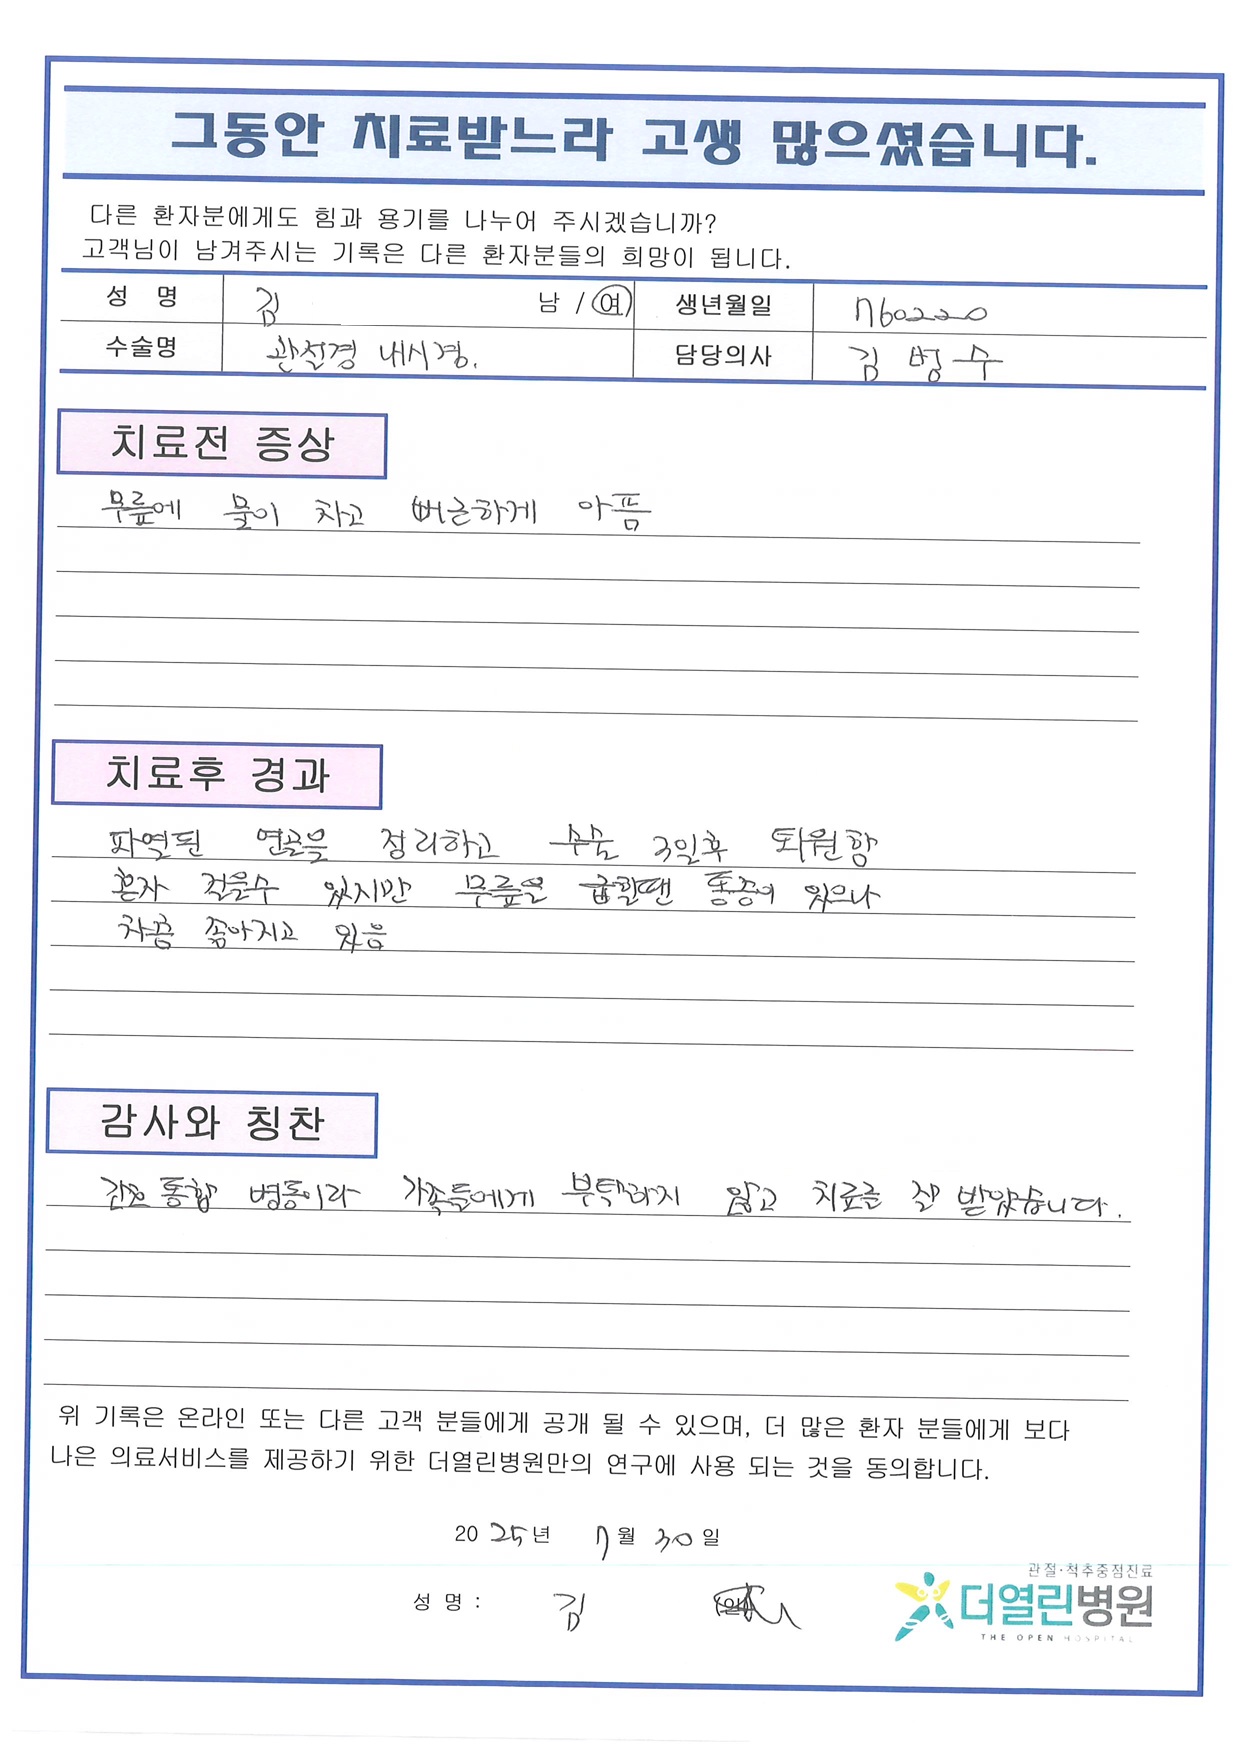 그동안 치료받느라 고생 많으셨습니다.
다른 환자분에게도 힘과 용기를 나누어 주시겠습니까?
고객님이 남겨주시는 기록은 다른 환자분들의 희망이 됩니다.
성 명 김 남 / 여 생년월일 760220
수술명 관절경 내시경. 담당의사 김병수
치료전 증상
무릎에 물이 차고 뻐근하게 아픔
치료후 경과
파열된 연골을 정리하고 수술 3일후 퇴원함
혼자 걸을수 있지만 무릎을 굽힐땐 통증이 있으나
차츰 좋아지고 있음
감사와 칭찬
간호통합 병동이라 가족들에게 부탁하지 않고 치료를 잘 받았습니다.
위 기록은 온라인 또는 다른 고객 분들에게 공개 될 수 있으며, 더 많은 환자 분들에게 보다
나은 의료서비스를 제공하기 위한 더열린병원만의 연구에 사용 되는 것을 동의합니다.
2025년 7월 30일
성 명 : 김 (인)
관절·척추중점진료
더열린병원
THE OPEN HOSPITAL